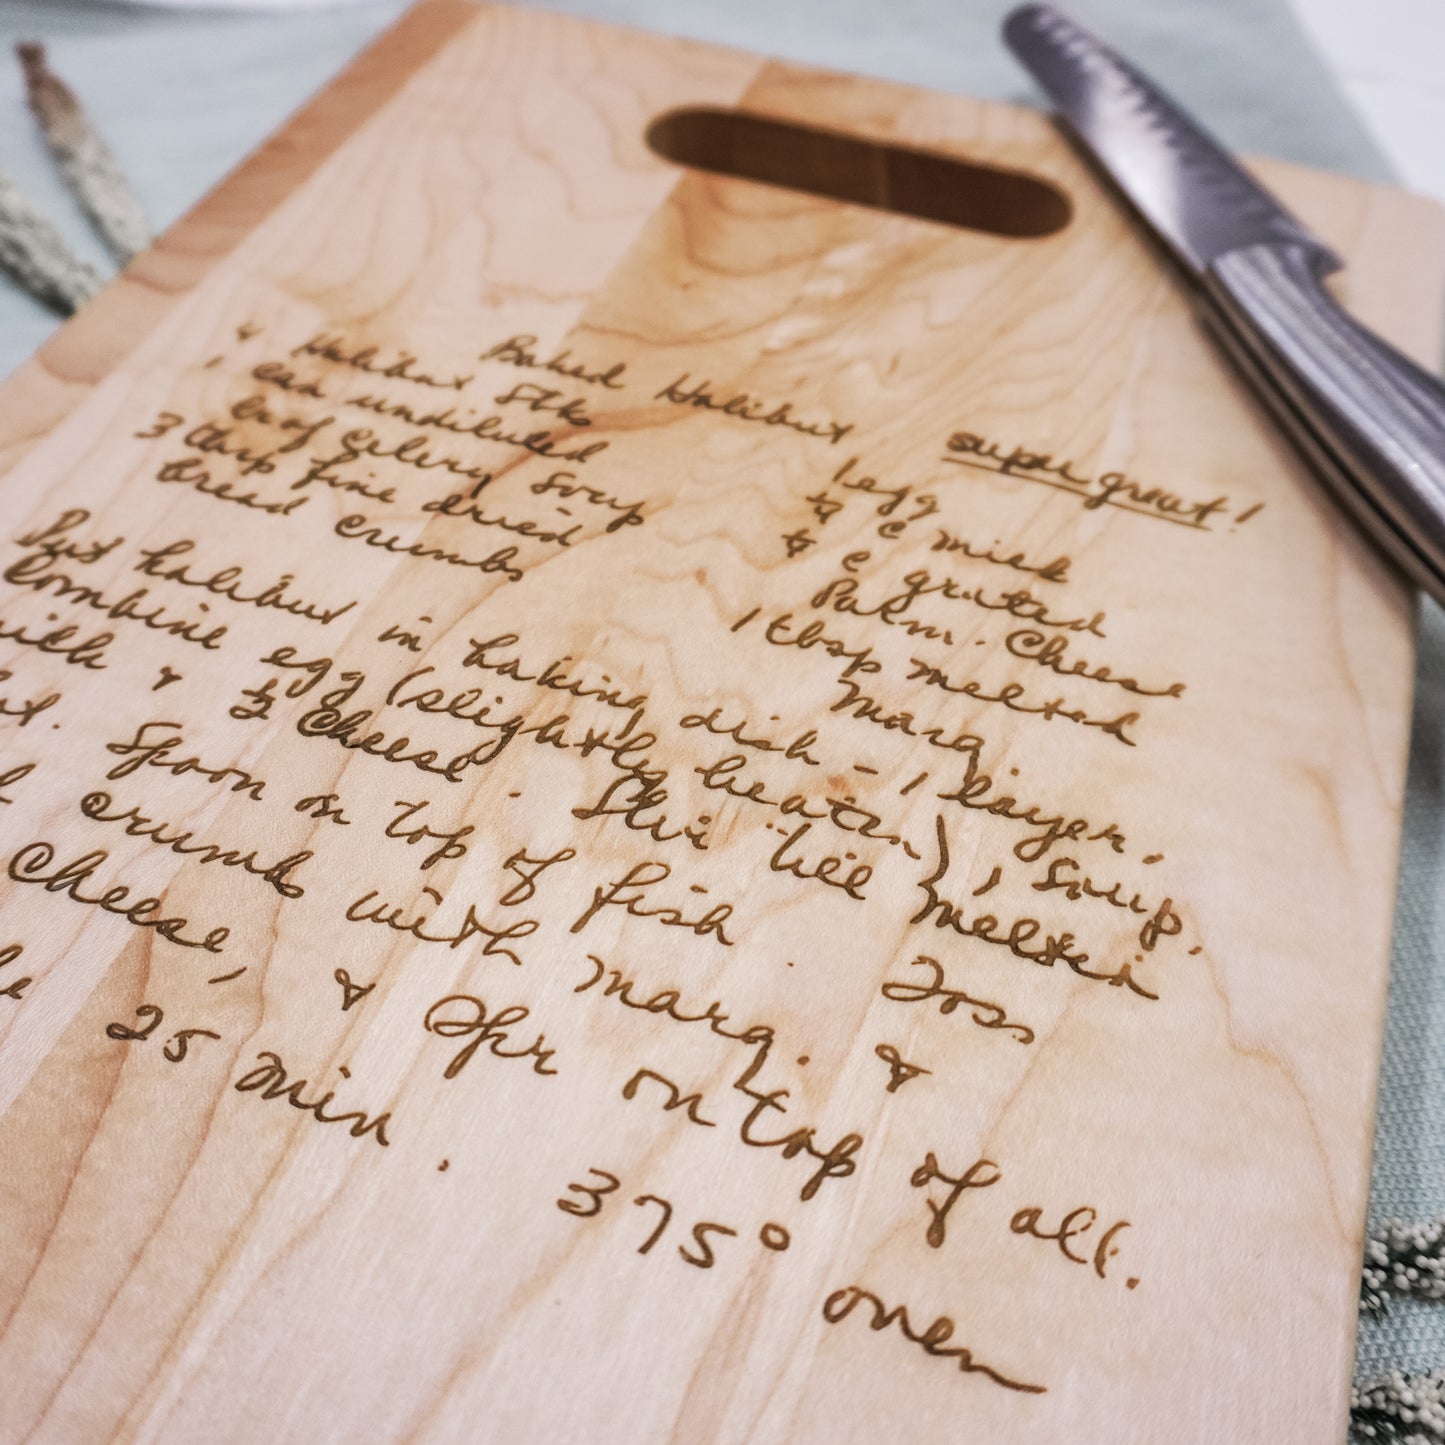 Baked Halibut
super great!
4 Halibut Stks
1 can undiluted
Cr of Celery Soup
3 tbsp fine dried
bread crumbs
1 egg
c milk
c grated
Parm. Cheese
1 tbsp melted
marg.
Put halibut in baking dish - 1 layer.
Combine egg (slightly beaten), soup,
milk & ½ cheese. Stir till melted
Spoon on top of fish. Toss
crumbs with marg. &
Cheese, & Spr on top of all.
25 min. 375° oven